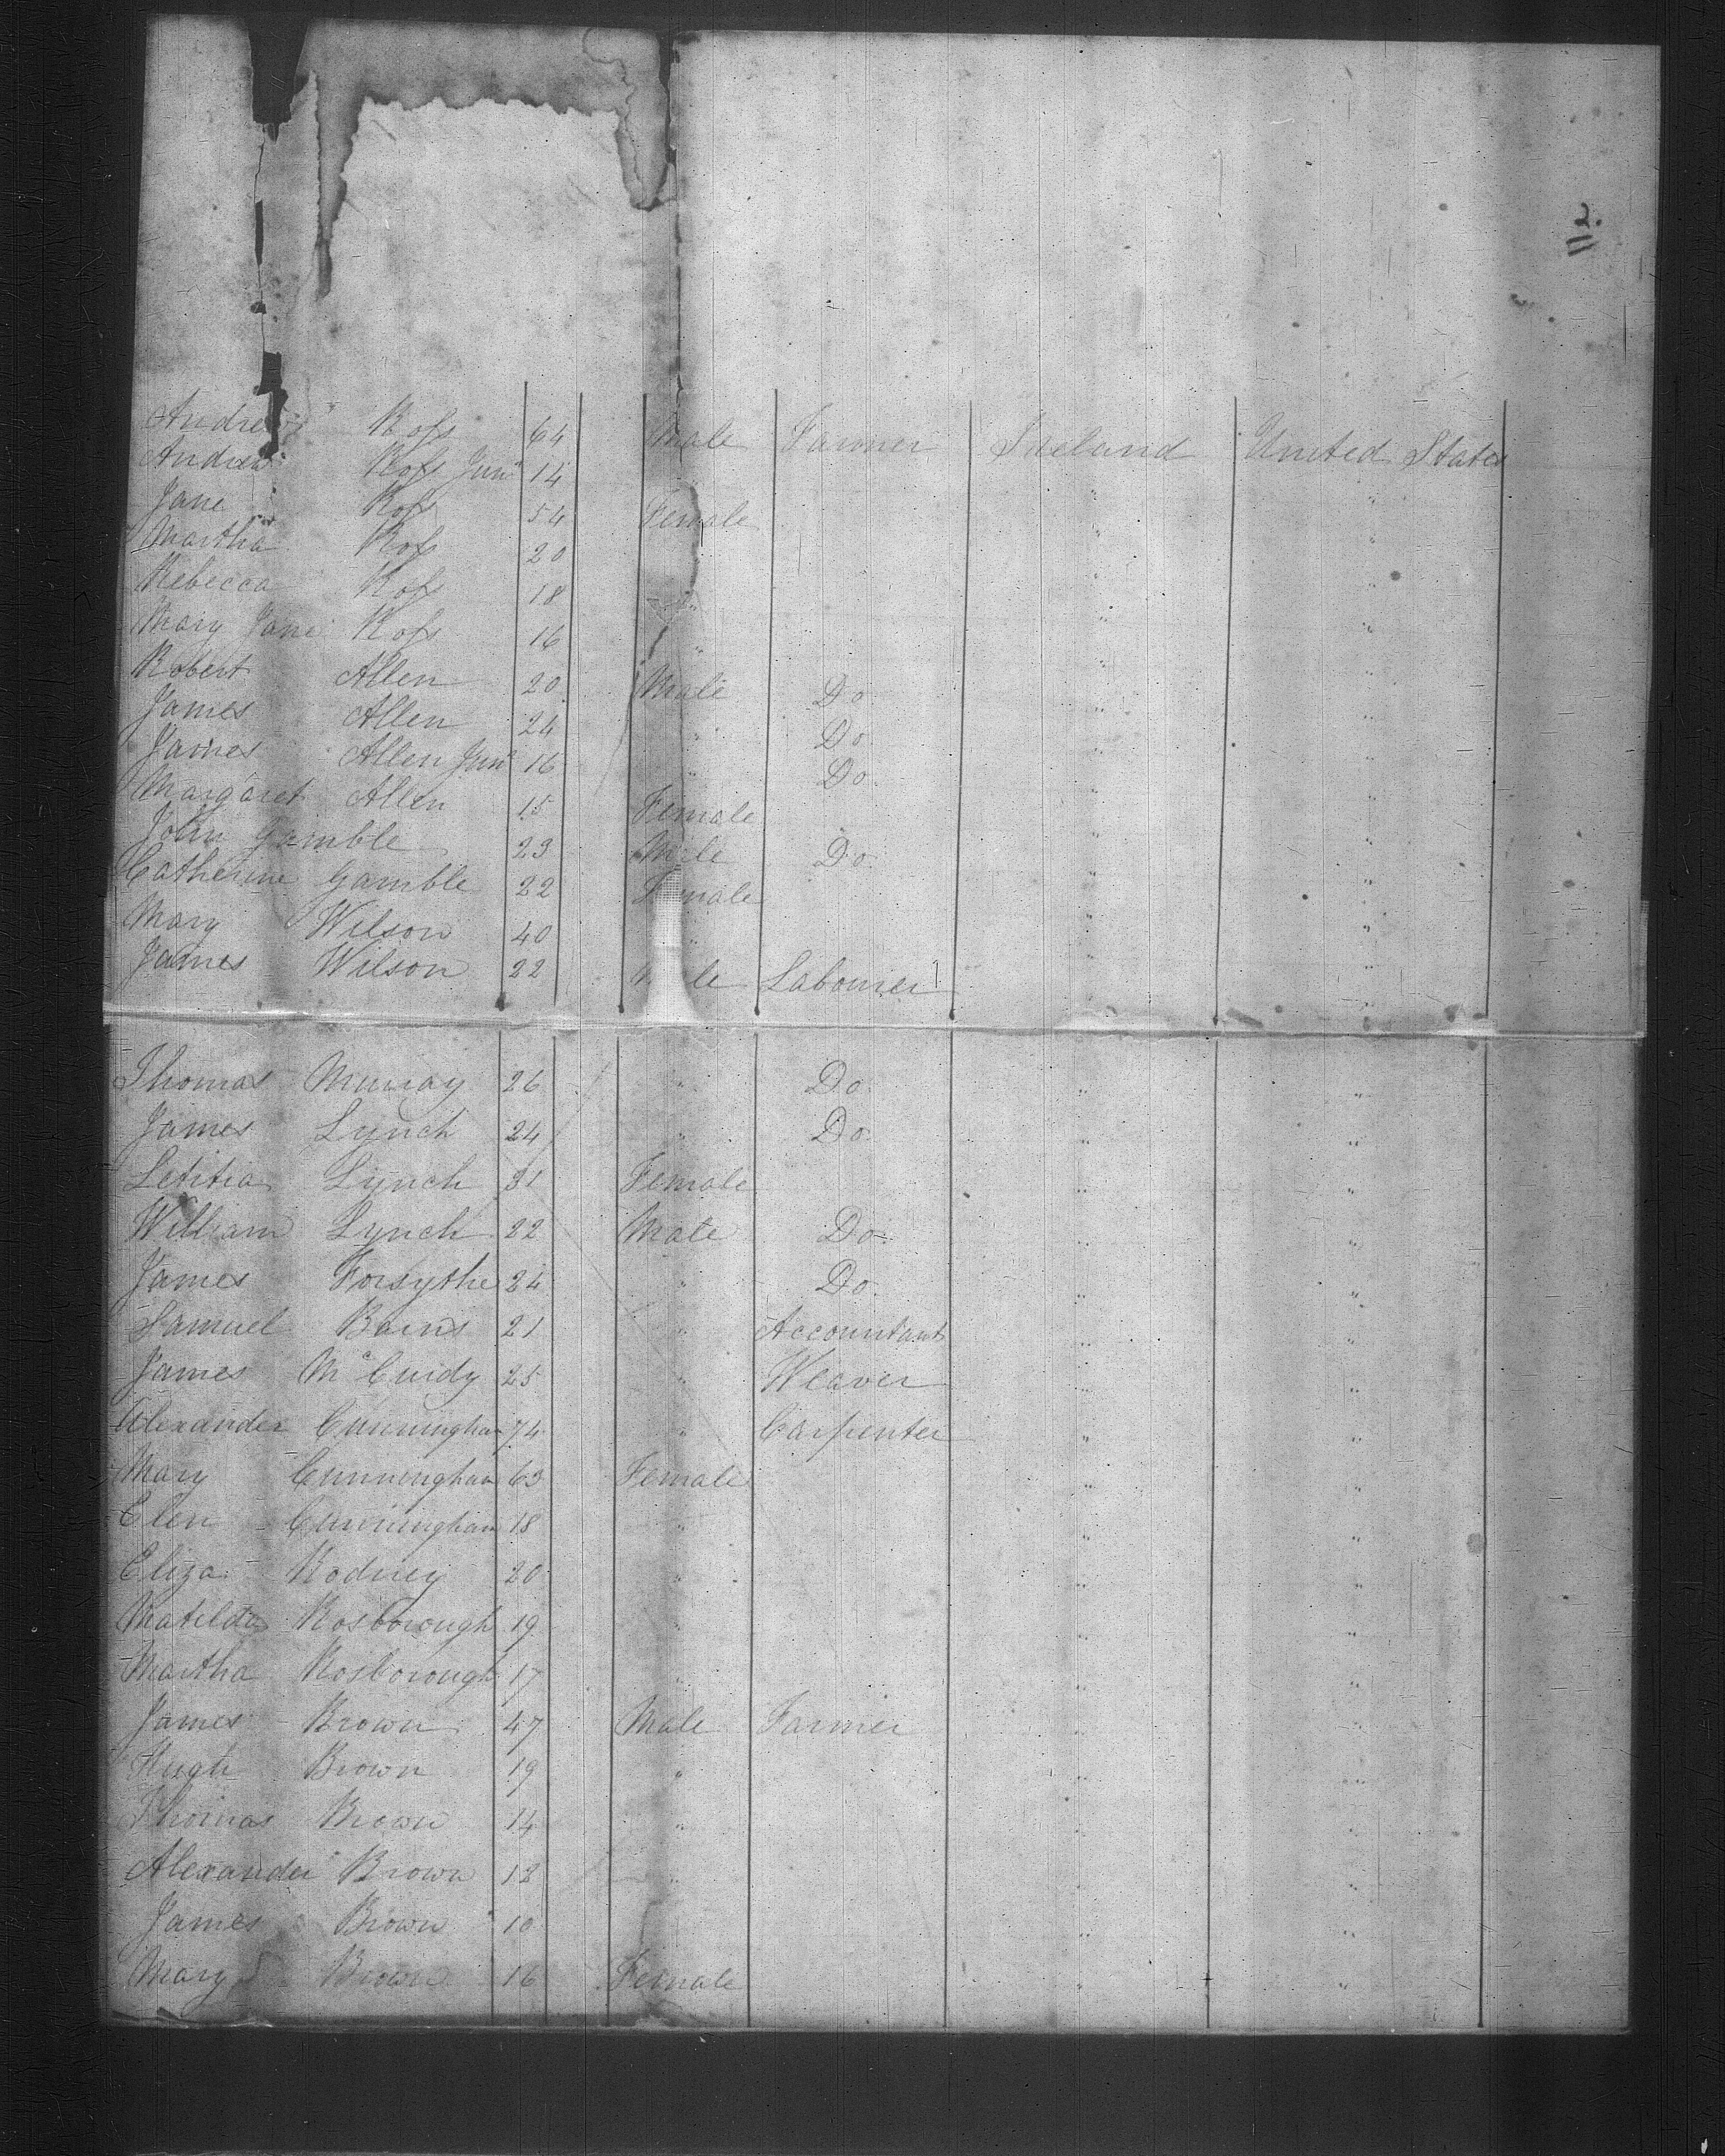 112.
Andrew Ross 64 Male Farmer Ireland United States
Andrew Ross Junr 14 "
Jane Ross 54 Female " "
Martha Ross 20 " "
Rebecca Ross 18 " " "
Mary Jane Ross 16 " " "
Robert Allen 20 Male Do " "
James Allen 24 " Do " "
James Allen Junr 16 " Do " "
Margaret Allen 15 Female " "
John Gamble 23 Male Do " "
Catherine Gamble 22 Female " "
Mary Wilson 40 " " "
James Wilson 22 Male Labourer " "
Thomas Murray 26 " Do " "
James Lynch 24 " Do " "
Letitia Lynch 31 Female " "
William Lynch 22 Male Do " "
James Forsythe 24 " Do " "
Samuel Bairns 21 " Accountant " "
James McCurdy 25 " Weaver " "
Alexander Cunningham 74 " Carpenter " "
Mary Cunningham 63 Female " "
Elen Cunningham 18 " " "
Eliza Rodney 20 " " "
Matilda Rosborough 19 " " "
Martha Rosborough 17 " " "
James Brown 47 Male Farmer " "
Hugh Brown 19 " " "
Thomas Brown 14 " " "
Alexander Brown 12 " " "
James Brown 10 " "
Mary Brown 16 Female " "